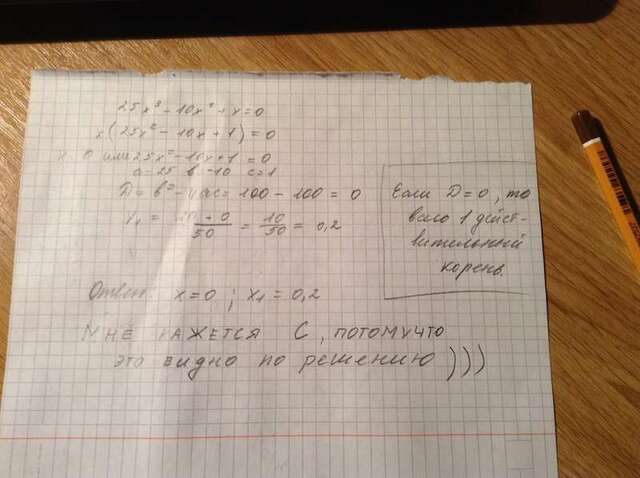 25x³ - 10x² + x = 0
x(25x² - 10x + 1) = 0
x = 0 или 25x² - 10x + 1 = 0
a = 25 b = -10 c = 1
D = b² - 4ac = 100 - 100 = 0
x₁ = 10 + 0 / 50 = 10 / 50 = 0,2
Если D = 0, то
1 дейст-
вительный
корень.
Ответ: x = 0 ; x₁ = 0,2
Мне кажется С, потому что
это видно по решению )))